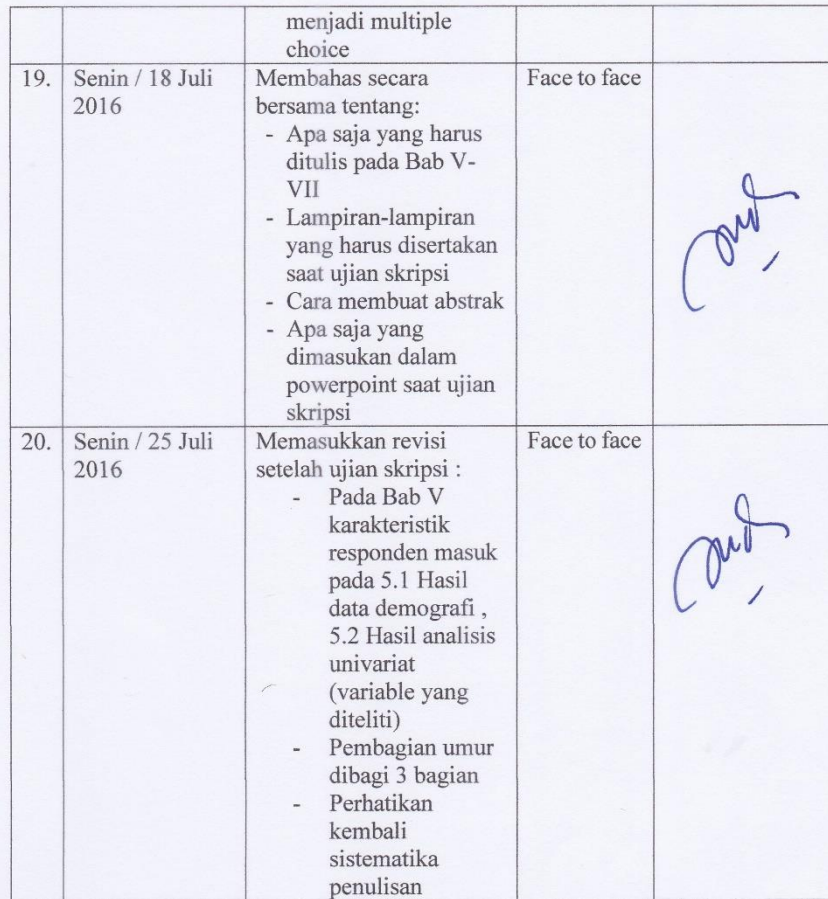 menjadi multiple
choice
19. Senin / 18 Juli Membahas secara Face to face
2016 bersama tentang:
- Apa saja yang harus
ditulis pada Bab V-
VII
- Lampiran-lampiran
yang harus disertakan
saat ujian skripsi
- Cara membuat abstrak
- Apa saja yang
dimasukan dalam
powerpoint saat ujian
skripsi
20. Senin / 25 Juli Memasukkan revisi Face to face
2016 setelah ujian skripsi :
- Pada Bab V
karakteristik
responden masuk
pada 5.1 Hasil
data demografi ,
5.2 Hasil analisis
univariat
(variable yang
diteliti)
- Pembagian umur
dibagi 3 bagian
- Perhatikan
kembali
sistematika
penulisan